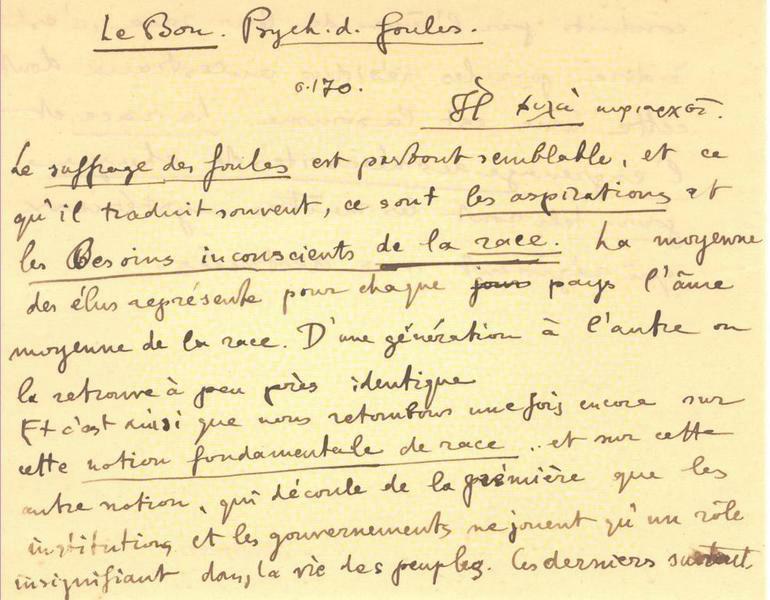 Le Bon. Psych. d. foules.
σ.170.
Ἡ φυλὴ κυριαρχεῖ.
Le suffrage des foules est partout semblable, et ce
qu'il traduit souvent, ce sont les aspirations et
les Besoins inconscients de la race. La moyenne
des élus représente pour chaque jours pays l'âme
moyenne de la race. D'une génération à l'autre on
la retrouve à peu près identique
Et c'est ainsi que nous retombons une fois encore sur
cette notion fondamentale de race .. et sur cette
autre notion, qui découle de la première que les
institutions et les gouvernements ne jouent qu'un rôle
insignifiant dans la vie des peuples. Ces derniers surtout